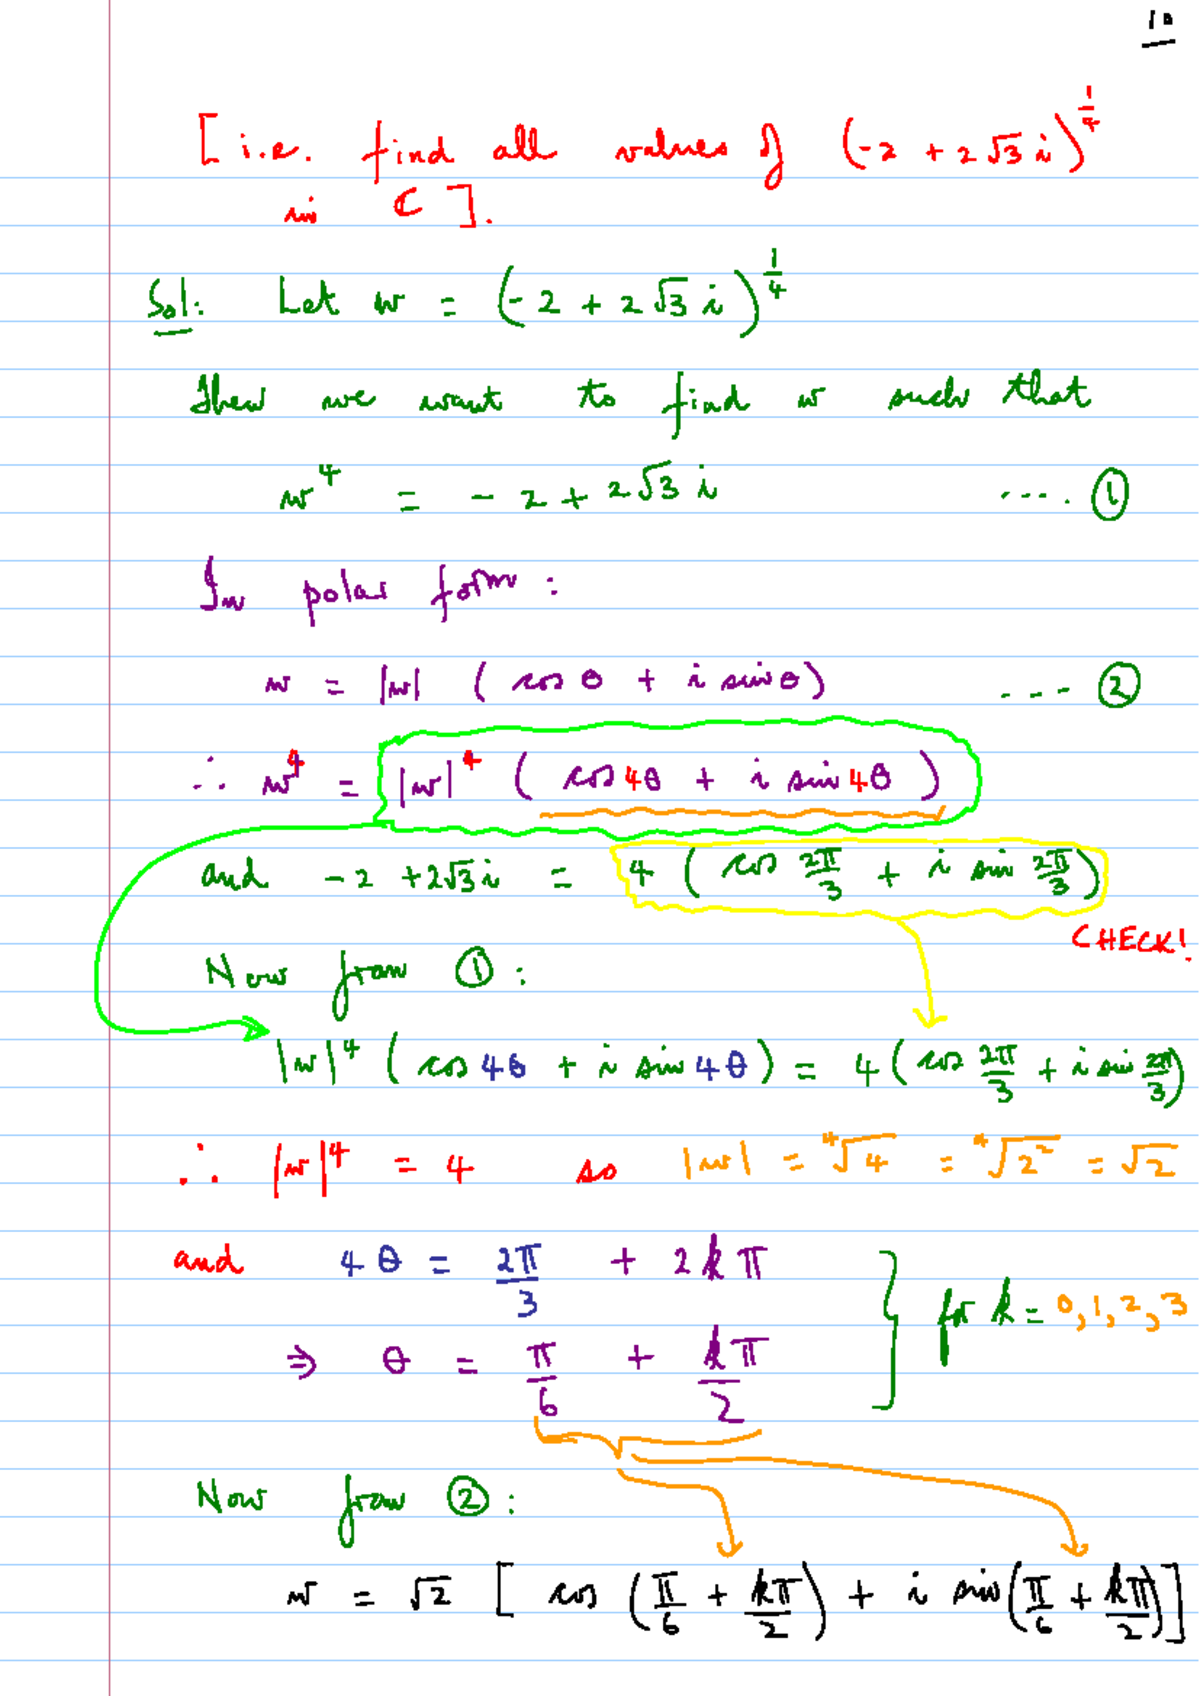 10
[i.e. find all values of (-2 + 2√3 i)^{1/4}
in ℂ ].
Sol: Let w = (-2 + 2√3 i)^{1/4}
Then we want to find w such that
w^4 = -2 + 2√3 i .... ①
In polar form:
w = |w| (cos θ + i sin θ) --- ②
∴ w^4 = |w|^4 (cos 4θ + i sin 4θ)
and -2 + 2√3 i = 4 (cos 2π/3 + i sin 2π/3)
CHECK!
Now from ①:
|w|^4 (cos 4θ + i sin 4θ) = 4 (cos 2π/3 + i sin 2π/3)
∴ |w|^4 = 4 so |w| = ∜4 = ∜2^2 = √2
and 4θ = 2π/3 + 2kπ
for k = 0, 1, 2, 3
⇒ θ = π/6 + kπ/2
Now from ②:
w = √2 [ cos (π/6 + kπ/2) + i sin (π/6 + kπ/2) ]